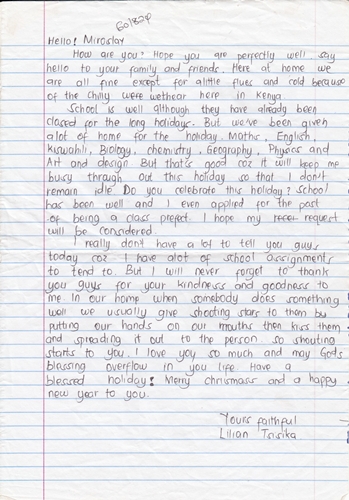 Hello! Miroslav
How are you? Hope you are perfectly well, say
hello to your family and friends. Here at home we
are all fine except for alittle flues and cold because
of the chilly were wethear here in Kenya
School is well although they have already been
closed for the long holidays. But we've been given
alot of home for the holiday. Maths, English,
Kiswahili, Biology, chemistry, Geography, Physics and
Art and design But that's good coz it will keep me
busy through out this holiday so that I don't
remain idle. Do you celebrate this holiday? School
has been well and I even applied for the post
of being a class prefect. I hope my request
will be considered.
I really don't have a lot to tell you guys
today coz I have alot of school assignments
to tend to. But I will never forget to thank
you guys for your kindness and goodness to
me. In our home when somebody does something
well we usually give shooting stars to them by
putting our hands on our mouths then kiss them
and spreading it out to the person. so shouting
starts to you. I love you so much and may Gods
blessing overflow in you life. Have a
blessed holiday! Merry chrismass and a happy
new year to you.
Yours faithful
Lilian Tsisika